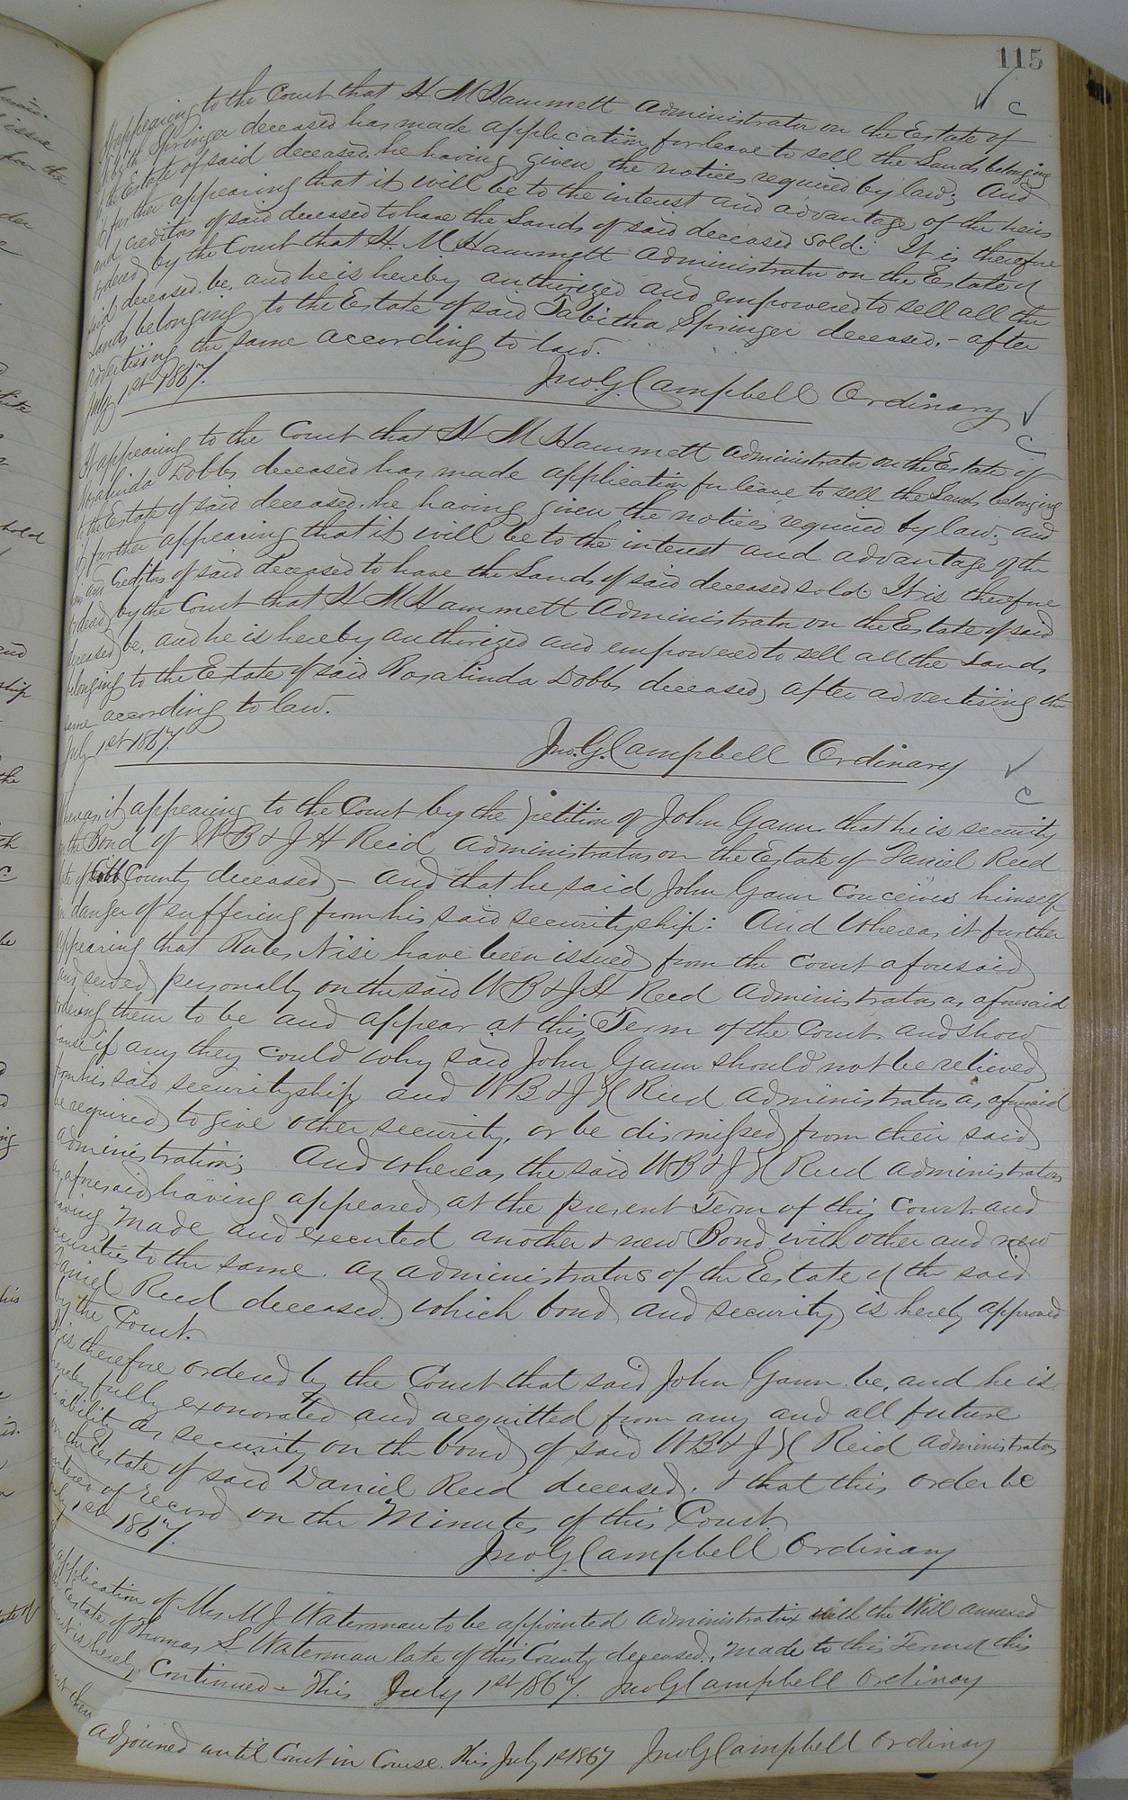 115
It appearing to the Court that H M Hammett Administrator on the Estate of
Tabitha Springer deceased has made application for leave to sell the Lands belonging
to the Estate of said deceased, he having given the notices required by law; And
it further appearing that it will be to the interest and advantage of the heirs
and Creditors of said deceased to have the Lands of said deceased sold: It is therefore
ordered by the Court that H. M Hammett Administrator on the Estate of
said deceased be, and he is hereby authorized and empowered to sell all the
Lands belonging to the Estate of said Tabitha Springer deceased, - after
advertising the same according to law.
July 1st 1867.
Jno. G. Campbell Ordinary
C
It appearing to the Court that H M Hammett Administrator on the Estate of
Rosalinda Dobbs deceased has made application for leave to sell the Lands belonging
to the Estate of said deceased, he having given the notices required by law; and
it further appearing that it will be to the interest and advantage of the
heirs and Creditors of said deceased to have the Lands of said deceased sold. It is therefore
ordered by the Court that H M Hammett Administrator on the Estate of said
deceased be, and he is hereby authorized and empowered to sell all the Lands
belonging to the Estate of said Rosalinda Dobbs deceased, after advertising the
same according to law.
July 1st 1867.
Jno. G. Campbell Ordinary
C
Whereas it appearing to the Court by the petition of John Gann that he is security
on the Bond of W B & J H Reid Administrators on the Estate of Daniel Reed
late of Cobb County deceased, - and that he said John Gann conceives himself
in danger of suffering from his said securityship: And Whereas it further
appearing that Rules Nisi have been issued from the Court aforesaid
and served personally on the said W B & J H Reed Administrators as aforesaid
ordering them to be and appear at this Term of the Court and show
cause if any they could why said John Gann should not be relieved
from his said securityship and W B & J H Reed Administrators as aforesaid
be required to give other security, or be dismissed from their said
administration; And whereas the said W B & J H Reed Administrators
as aforesaid having appeared at the present Term of this Court and
having made and executed another & new Bond with other and new
securities to the same as administrators of the Estate of the said
Daniel Reed deceased, which bond and security is hereby approved
by the Court.
It is therefore ordered by the Court that said John Gann be, and he is
hereby fully exonorated and acquitted from any and all future
liability as security on the bond of said W B & J H Reid Administrators
on the Estate of said Daniel Reed deceased. & that this order be
entered of record on the Minutes of this Court.
July 1st 1867.
Jno. G. Campbell Ordinary
application of Mrs M J Waterman to be appointed Administratrix with the Will annexed
Estate of Thomas S. Waterman late of this County deceased, made to this Term of this
Court is hereby Continued - This July 1st 1867. Jno G Campbell Ordinary
adjourned until Court in Course. This July 1st 1867 Jno G Campbell Ordinary